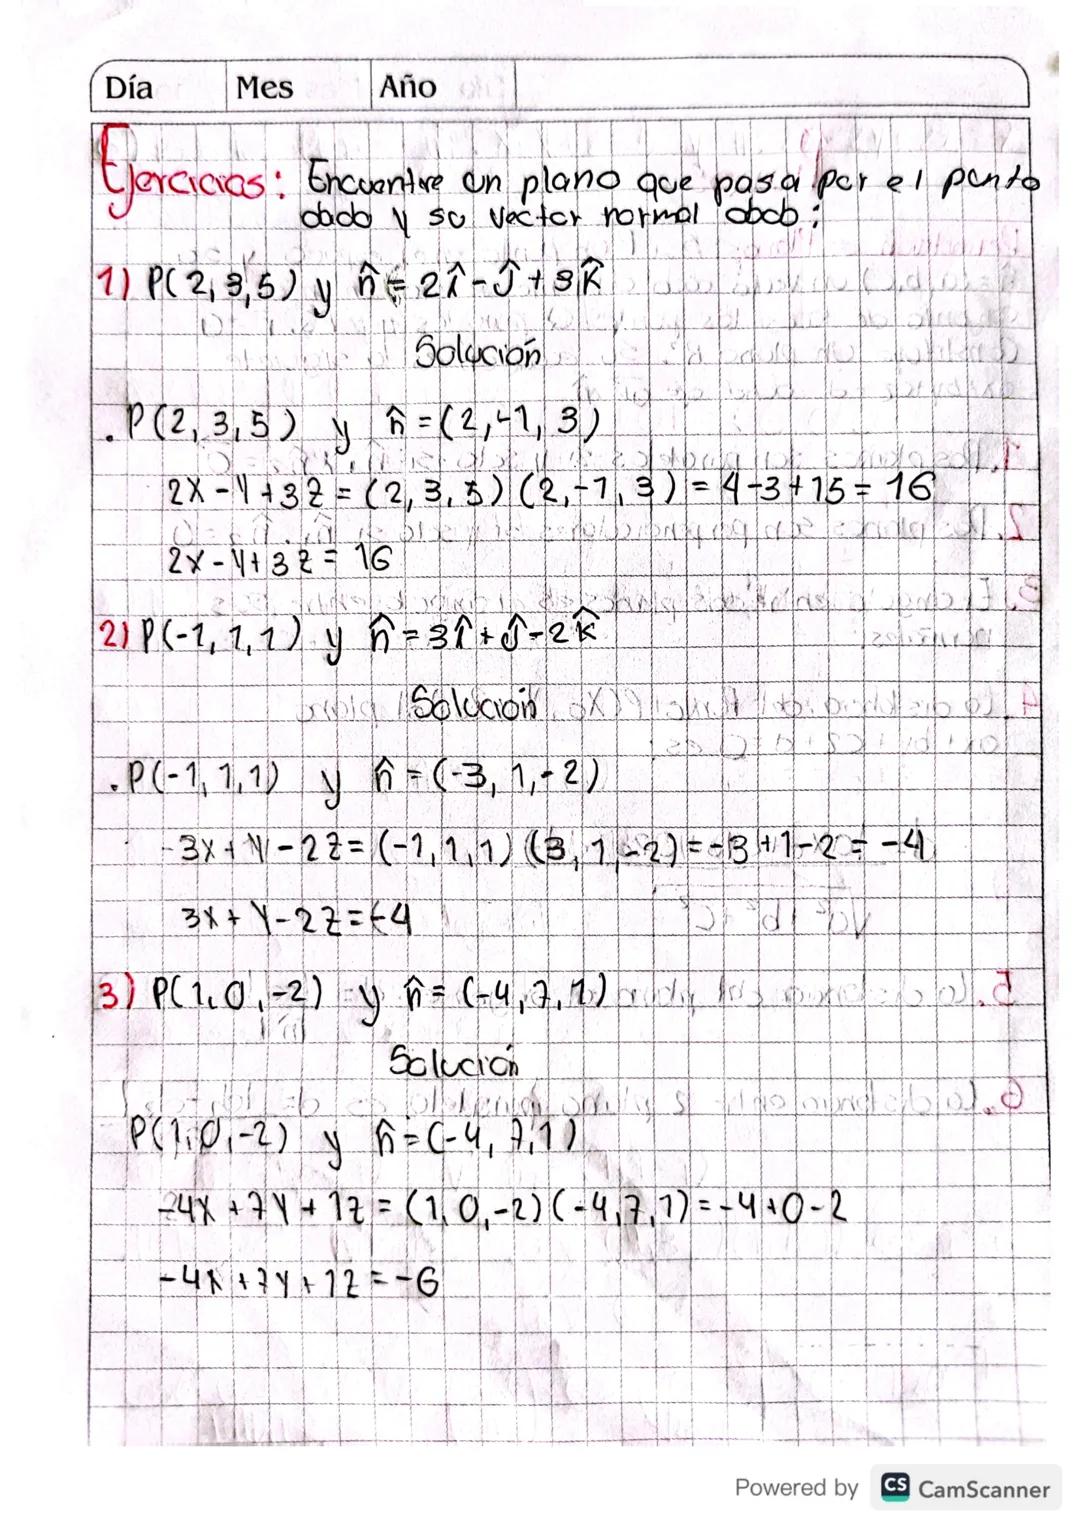 Día Mes Año
Ejercicios: Encuentre un plano que pasa por el punto
dado y su vector normal dado:
1) P(2,3,5) y n̂ = 2î - ĵ + 3k̂
Solución
. P(2,3,5) y n̂ = (2,-1,3)
2x - y + 3z = (2,3,5)(2,-1,3) = 4-3+15 = 16
2x - y + 3z = 16
2) P(-1,1,1) y n̂ = 3î + ĵ - 2k̂
Solución
. P(-1,1,1) y n̂ = (-3,1,-2)
-3x + y - 2z = (-1,1,1)(3,1,-2) = -3+1-2 = -4
3x + y - 2z = -4
3) P(1,0,-2) y n̂ = (-4,7,1)
Solución
P(1,0,-2) y n̂ = (-4,7,1)
-4x + 7y + 1z = (1,0,-2)(-4,7,1) = -4+0-2
-4x + 7y + 1z = -6
Powered by CS CamScanner